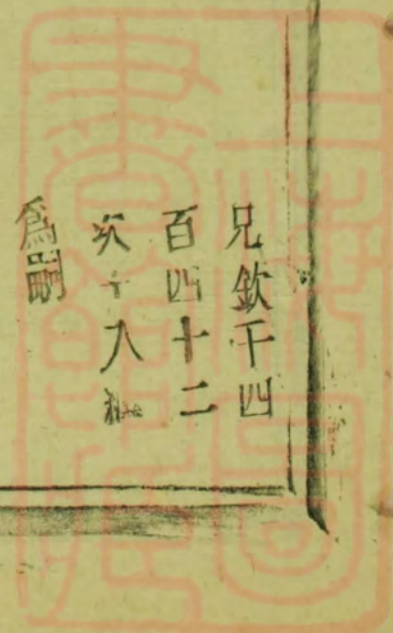 兄欽千四
百四十二
次子入繼
爲嗣